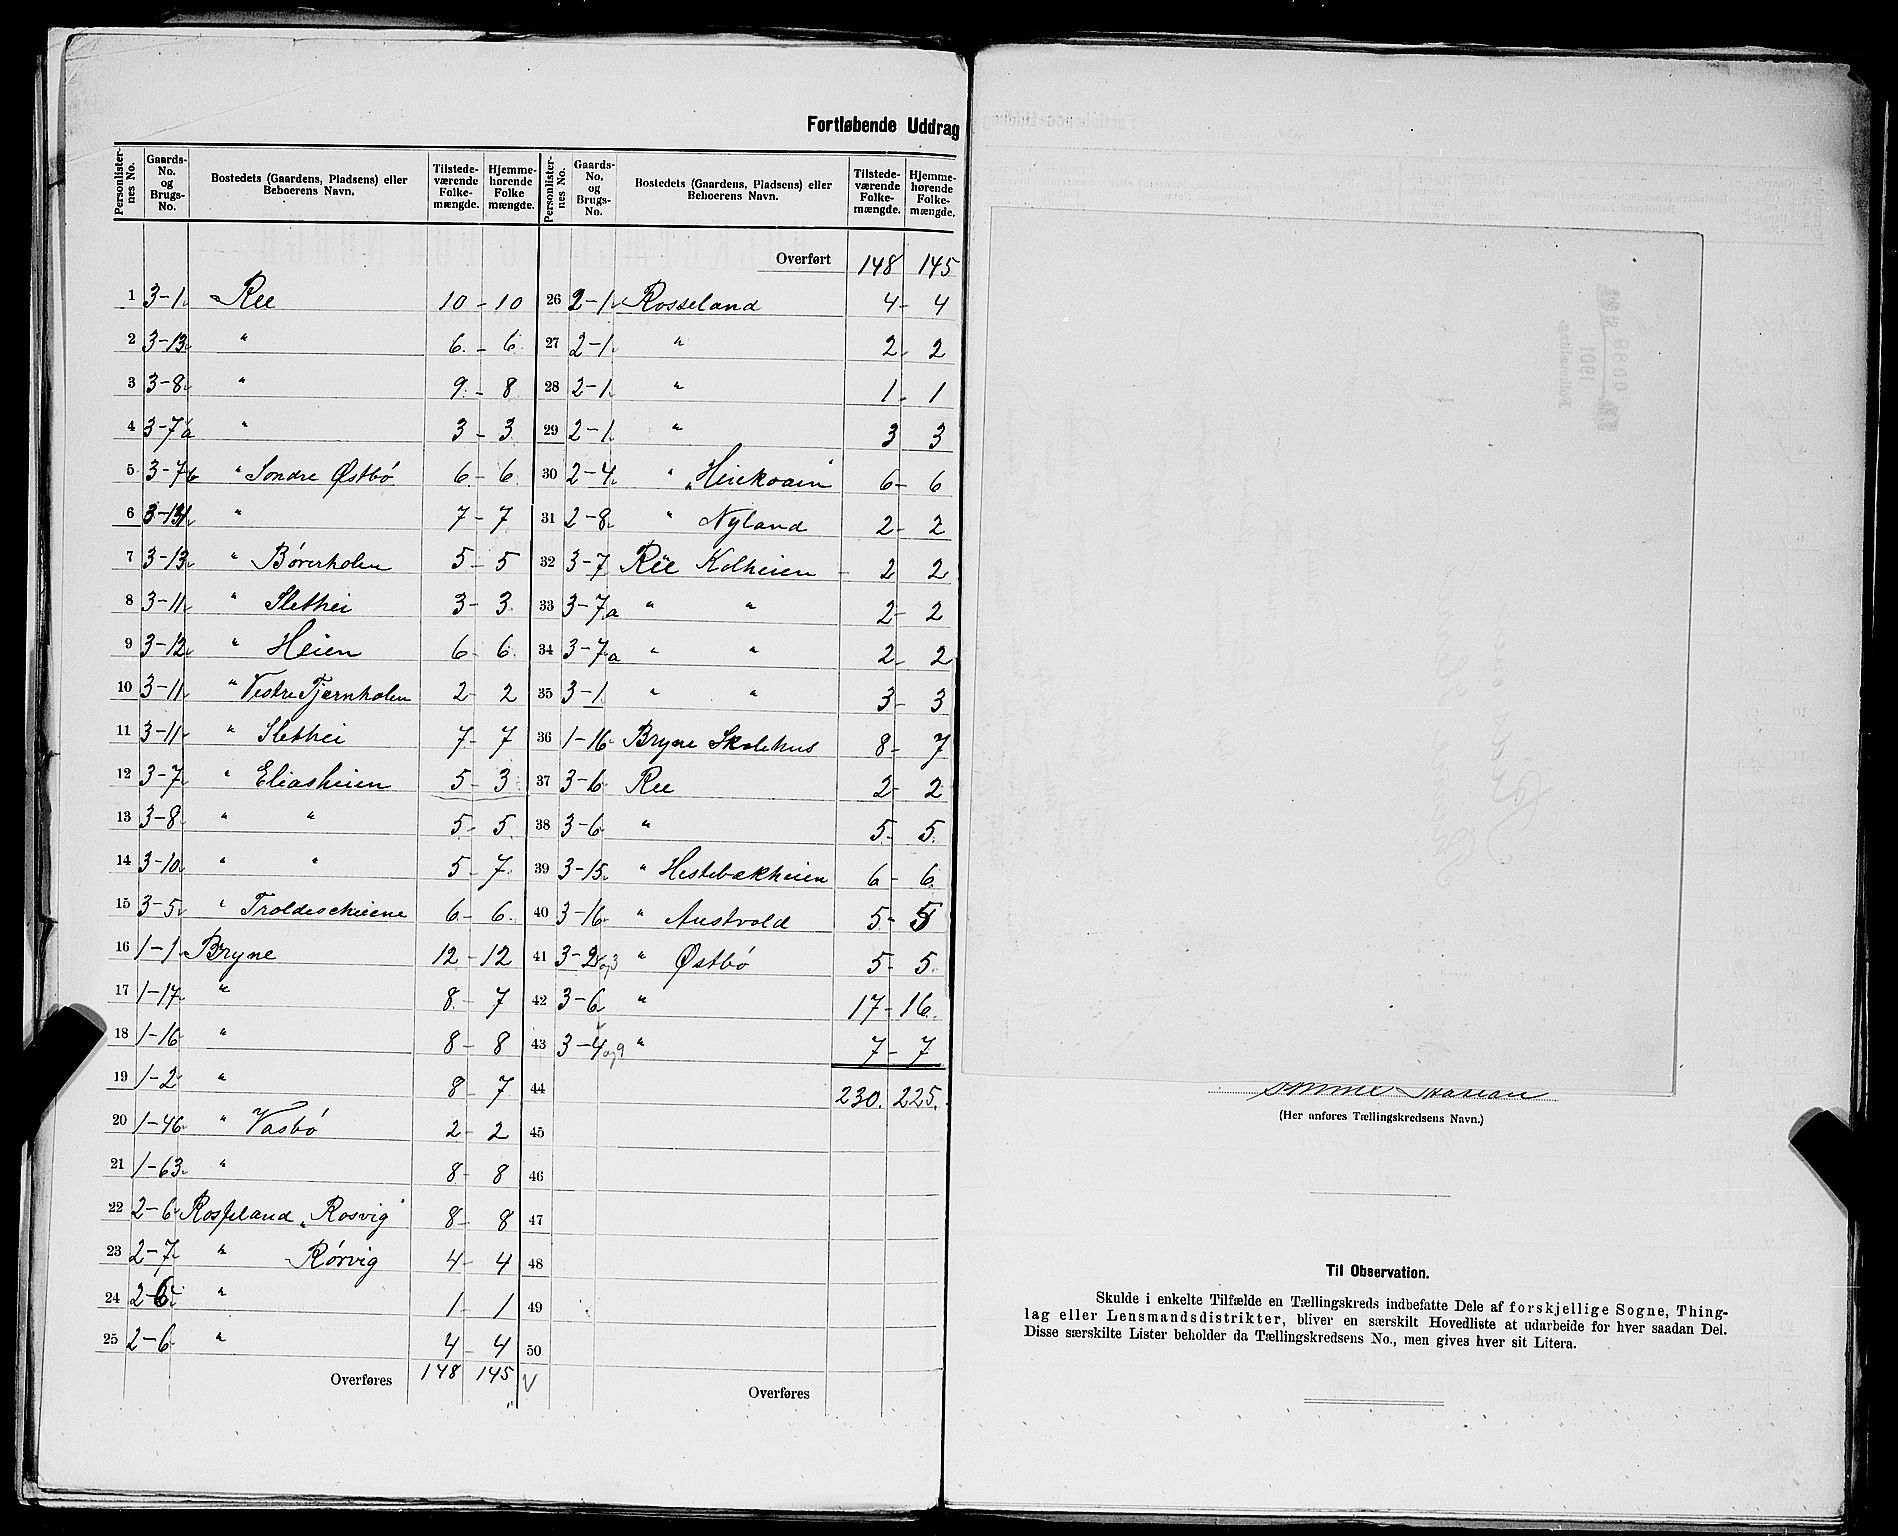 Fortløbende Uddrag
Personlister-nes No. | Gaards-No. og Brugs-No. | Bostedets (Gaardens, Pladsens) eller Beboerens Navn. | Tilstede-værende Folke-mængde. | Hjemme-hørende Folke mængde.
1 3-1 Ree 10 - 10
2 3-13 " 6 - 6
3 3-8 " 9 - 8
4 3-7a " 3 - 3
5 3-7b " Søndre Østbø 6 - 6
6 3-14 " 7 - 7
7 3-13 " Børerholen 5 - 5
8 3-11 " Slethei 3 - 3
9 3-12 " Heien 6 - 6
10 3-11 " Vestre Tjernholen 2 - 2
11 3-11 " Slethei 7 - 7
12 3-7 " Eliasheien 5 - 3
13 3-8 " " 5 - 5
14 3-10 " " 5 - 7
15 3-5 " 6 - 6
16 1-1 Bryne 12 - 12
17 1-17 " 8 - 7
18 1-16 " 8 - 8
19 1-2 " 8 - 7
20 1-46 " Vasbø 2 - 2
21 1-63 " 8 - 8
22 2-6 Rosseland „Rosvig" 8 - 8
23 2-7 " Rørvig 4 - 4
24 2-6 " 1 - 1
25 2-6 " 4 - 4
Overføres 148 145
Personlister-nes No. | Gaards-No. og Brugs-No. | Bostedets (Gaardens, Pladsens) eller Beboerens Navn. | Tilstede-værende Folke-mængde. | Hjemme-hørende Folke-mængde.
Overført 148 145
26 2-1 Rosseland 4 - 4
27 2-1 " 2 - 2
28 2-1 " 1 - 1
29 2-1 " 3 3
30 2-4 " 6 - 6
31 2-8 " Nyland 2 - 2
32 3-7 Ree Kolheien 2 2
33 3-7a " " 2 - 2
34 3-7a " " 2 - 2
35 3-1 " " 3 - 3
36 1-16 Bryne Skolehus 8 - 7
37 3-6 Ree 2 - 2
38 3-6 " 5 - 5
39 3-15 " Hestebækheien 6 - 6
40 3-16 " Austvold 5 - 5
41 3-2 og 3 " Østbø 5 - 5
42 3-6 " 17 - 16
43 3-4 og 9 " 7 - 7
44 230. 225.
45
46
47
48
49
50
Overføres
(Her anføres Tællingskredsens Navn.)
Til Observation.
Skulde i enkelte Tilfælde en Tællingskreds indbefatte Dele af forskjellige Sogne, Thing-
lag eller Lensmandsdistrikter, bliver en særskilt Hovedliste at udarbeide for hver saadan Del.
Disse særskilte Lister beholder da Tællingskredsens No., men gives hver sit Litera.